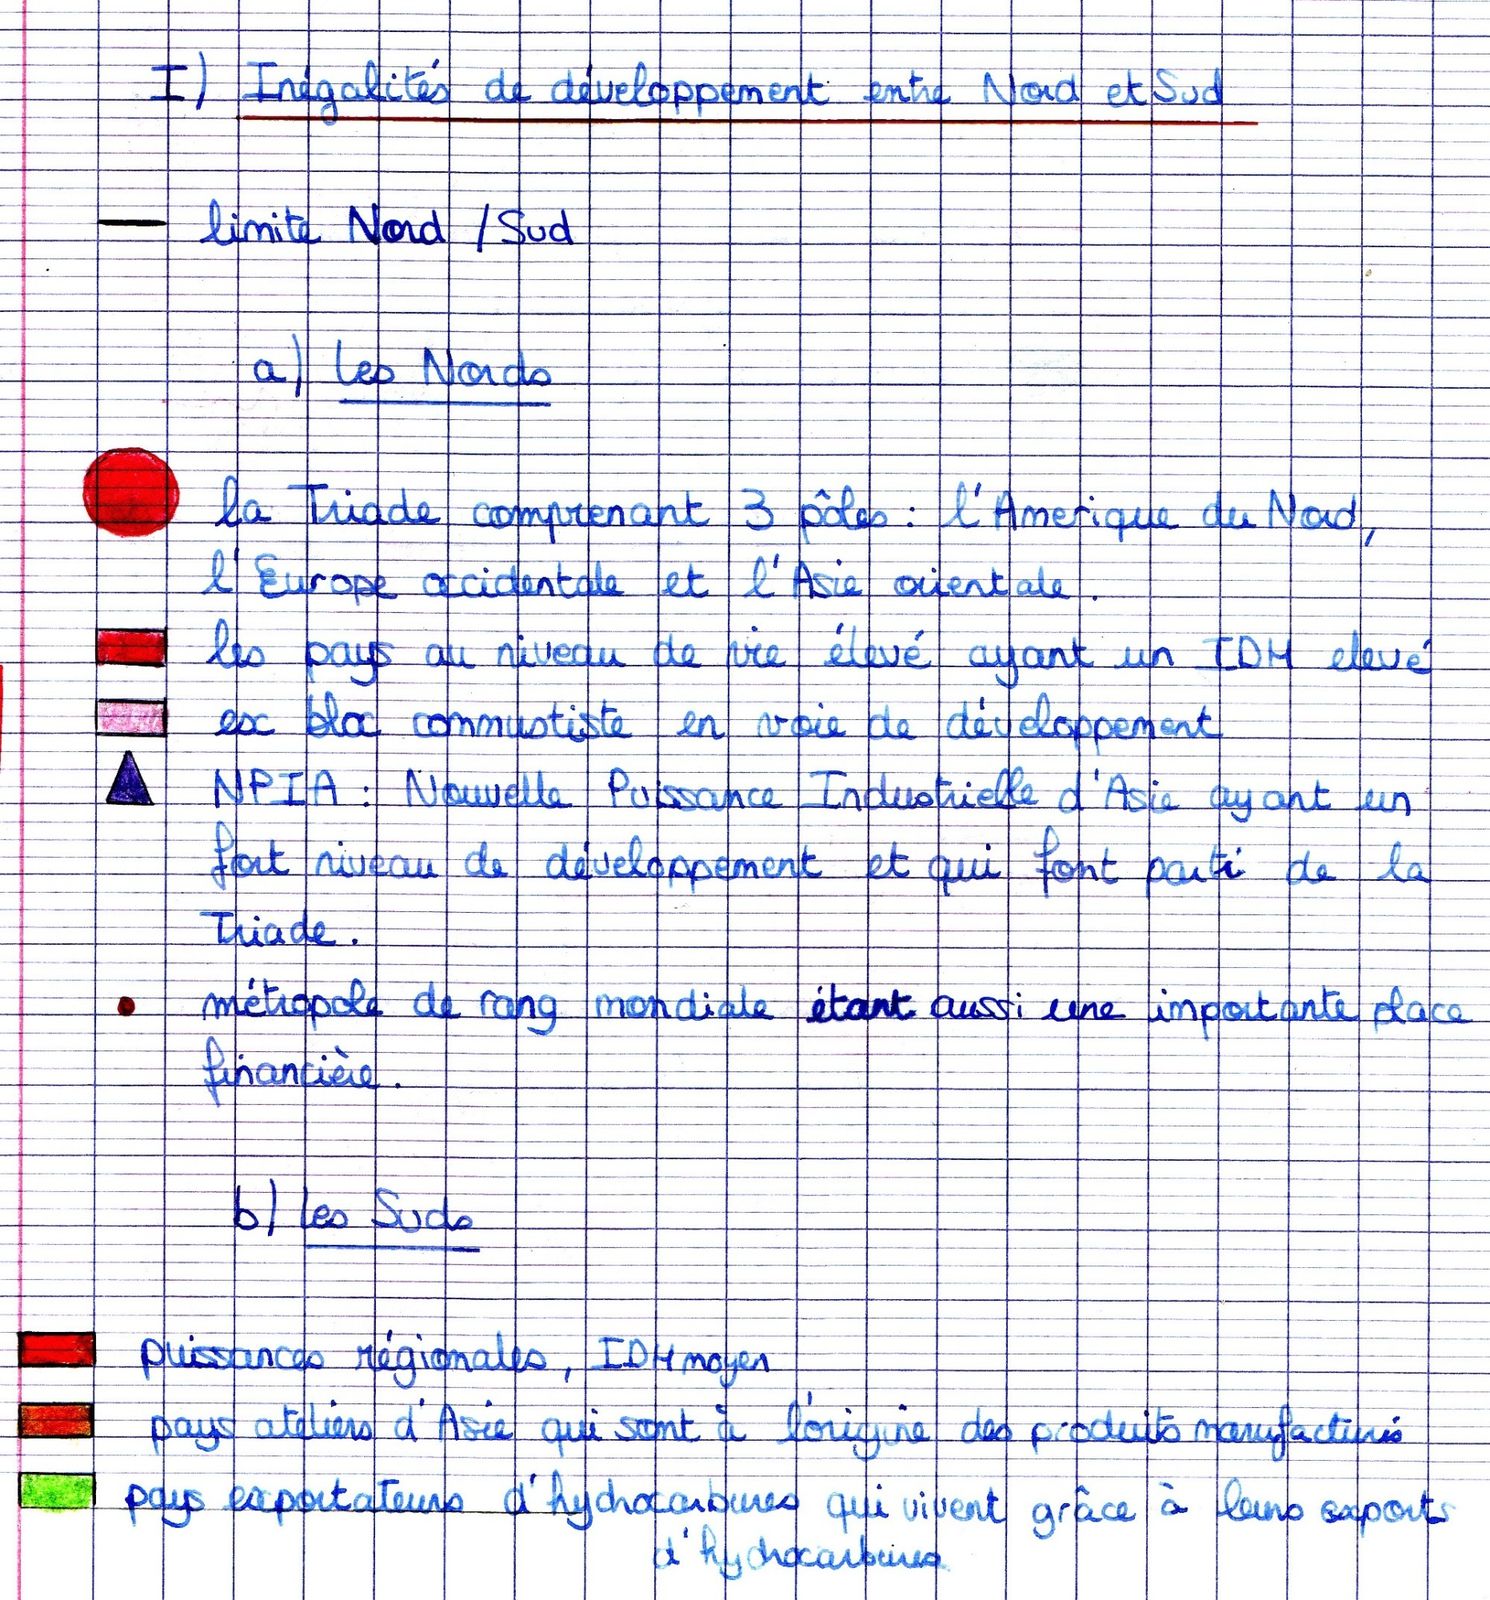 I) Inégalités de développement entre Nord et Sud
limite Nord / Sud
a) Les Nords
la Triade comprenant 3 pôles : l'Amerique du Nord,
l'Europe occidentale et l'Asie orientale.
les pays au niveau de vie élevé ayant un IDH elevé
ex bloc commustiste en voie de développement
NPIA : Nouvelle Puissance Industrielle d'Asie ayant un
fort niveau de développement et qui font parti de la
Triade.
métropole de rang mondiale étant aussi une importante place
financière.
b) Les Suds
puissances régionales, IDH moyen
pays ateliers d'Asie qui sont à l'origine des produits manufacturés
pays exportateurs d'hydrocarbures qui vivent grâce à leurs exports
d'hydrocarbures